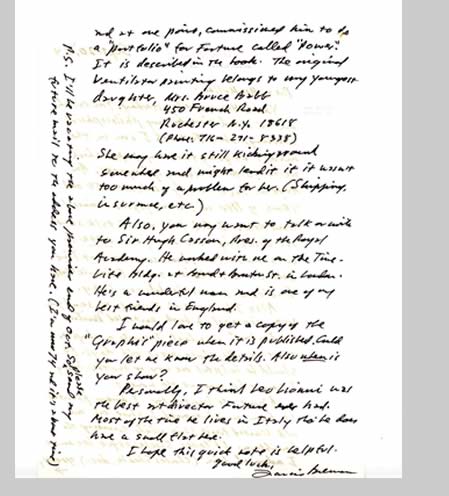 and at one point, commissioned him to do
a "portfolio" for Fortune called "Power."
It is described in the book. The original
Ventilator painting belongs to my youngest
daughter Mrs. Bruce Babb
450 French Road
Rochester N.Y. 14618
(Phone: 716-271-8338)
She may have it still kicking around
somewhere and might lend it if it wasn't
too much of a problem for her. (Shipping,
insurance, etc.)
Also, you may want to talk or write
to Sir Hugh Casson, Pres. of the Royal
Academy. He worked with me on the Time-
Life Bldg. at Bruton St. in London.
He's a wonderful man and is one of my
best friends in England.
I would love to get a copy of the
"Graphis" piece when it is published. Could
you let me know the details. Also when is
your show?
Personally, I think Leo Lionni was
the best art director Fortune ever had.
Most of the time he lives in Italy tho he does
have a small flat here.
I hope this quick note is helpful.
Good luck,
Francis Brennan
P.S. I'll be vacating the above premises end of Oct. So, please send any
future mail to the address you have. (I'm